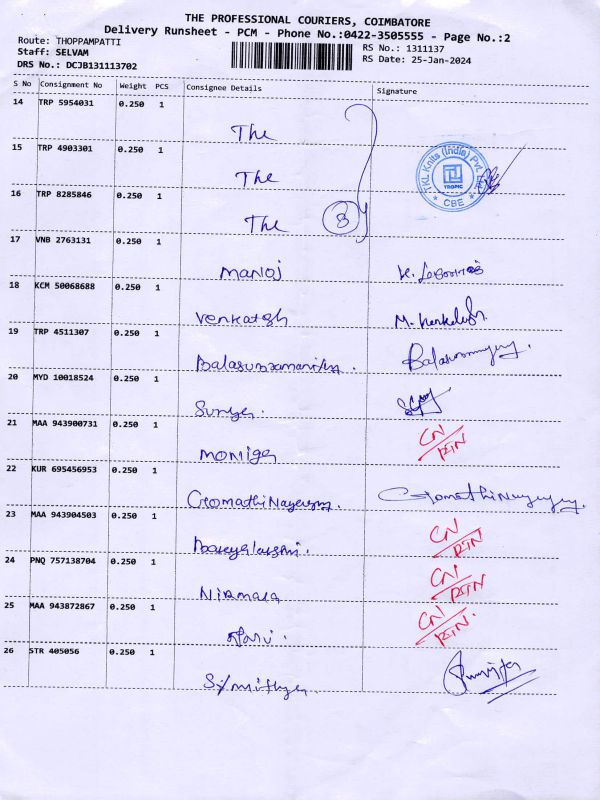 THE PROFESSIONAL COURIERS, COIMBATORE
Delivery Runsheet - PCM - Phone No.:0422-3505555 - Page No.:2
Route: THOPPAMPATTI
RS No.: 1311137
Staff: SELVAM
RS Date: 25-Jan-2024
DRS No.: DCJB131113702
S No Consignment No Weight PCS Consignee Details Signature
14 TRP 5954031 0.250 1
The
15 TRP 4903301 0.250 1
The
TKL Knits (India) Pvt.
TROPIC
* CBE *
16 TRP 8285846 0.250 1
The 3
17 VNB 2763131 0.250 1
Manoj
18 KCM 50068688 0.250 1
Venkatesh
19 TRP 4511307 0.250 1
20 MYD 10018524 0.250 1
Surya.
21 MAA 943900731 0.250 1
Moniga CN/RTN
22 KUR 695456953 0.250 1
GomathiNayagam GomathiNayagam
23 MAA 943904503 0.250 1
CN/RTN
24 PNQ 757138704 0.250 1
Nirmala CN/RTN
25 MAA 943872867 0.250 1
CN/RTN.
26 STR 405056 0.250 1